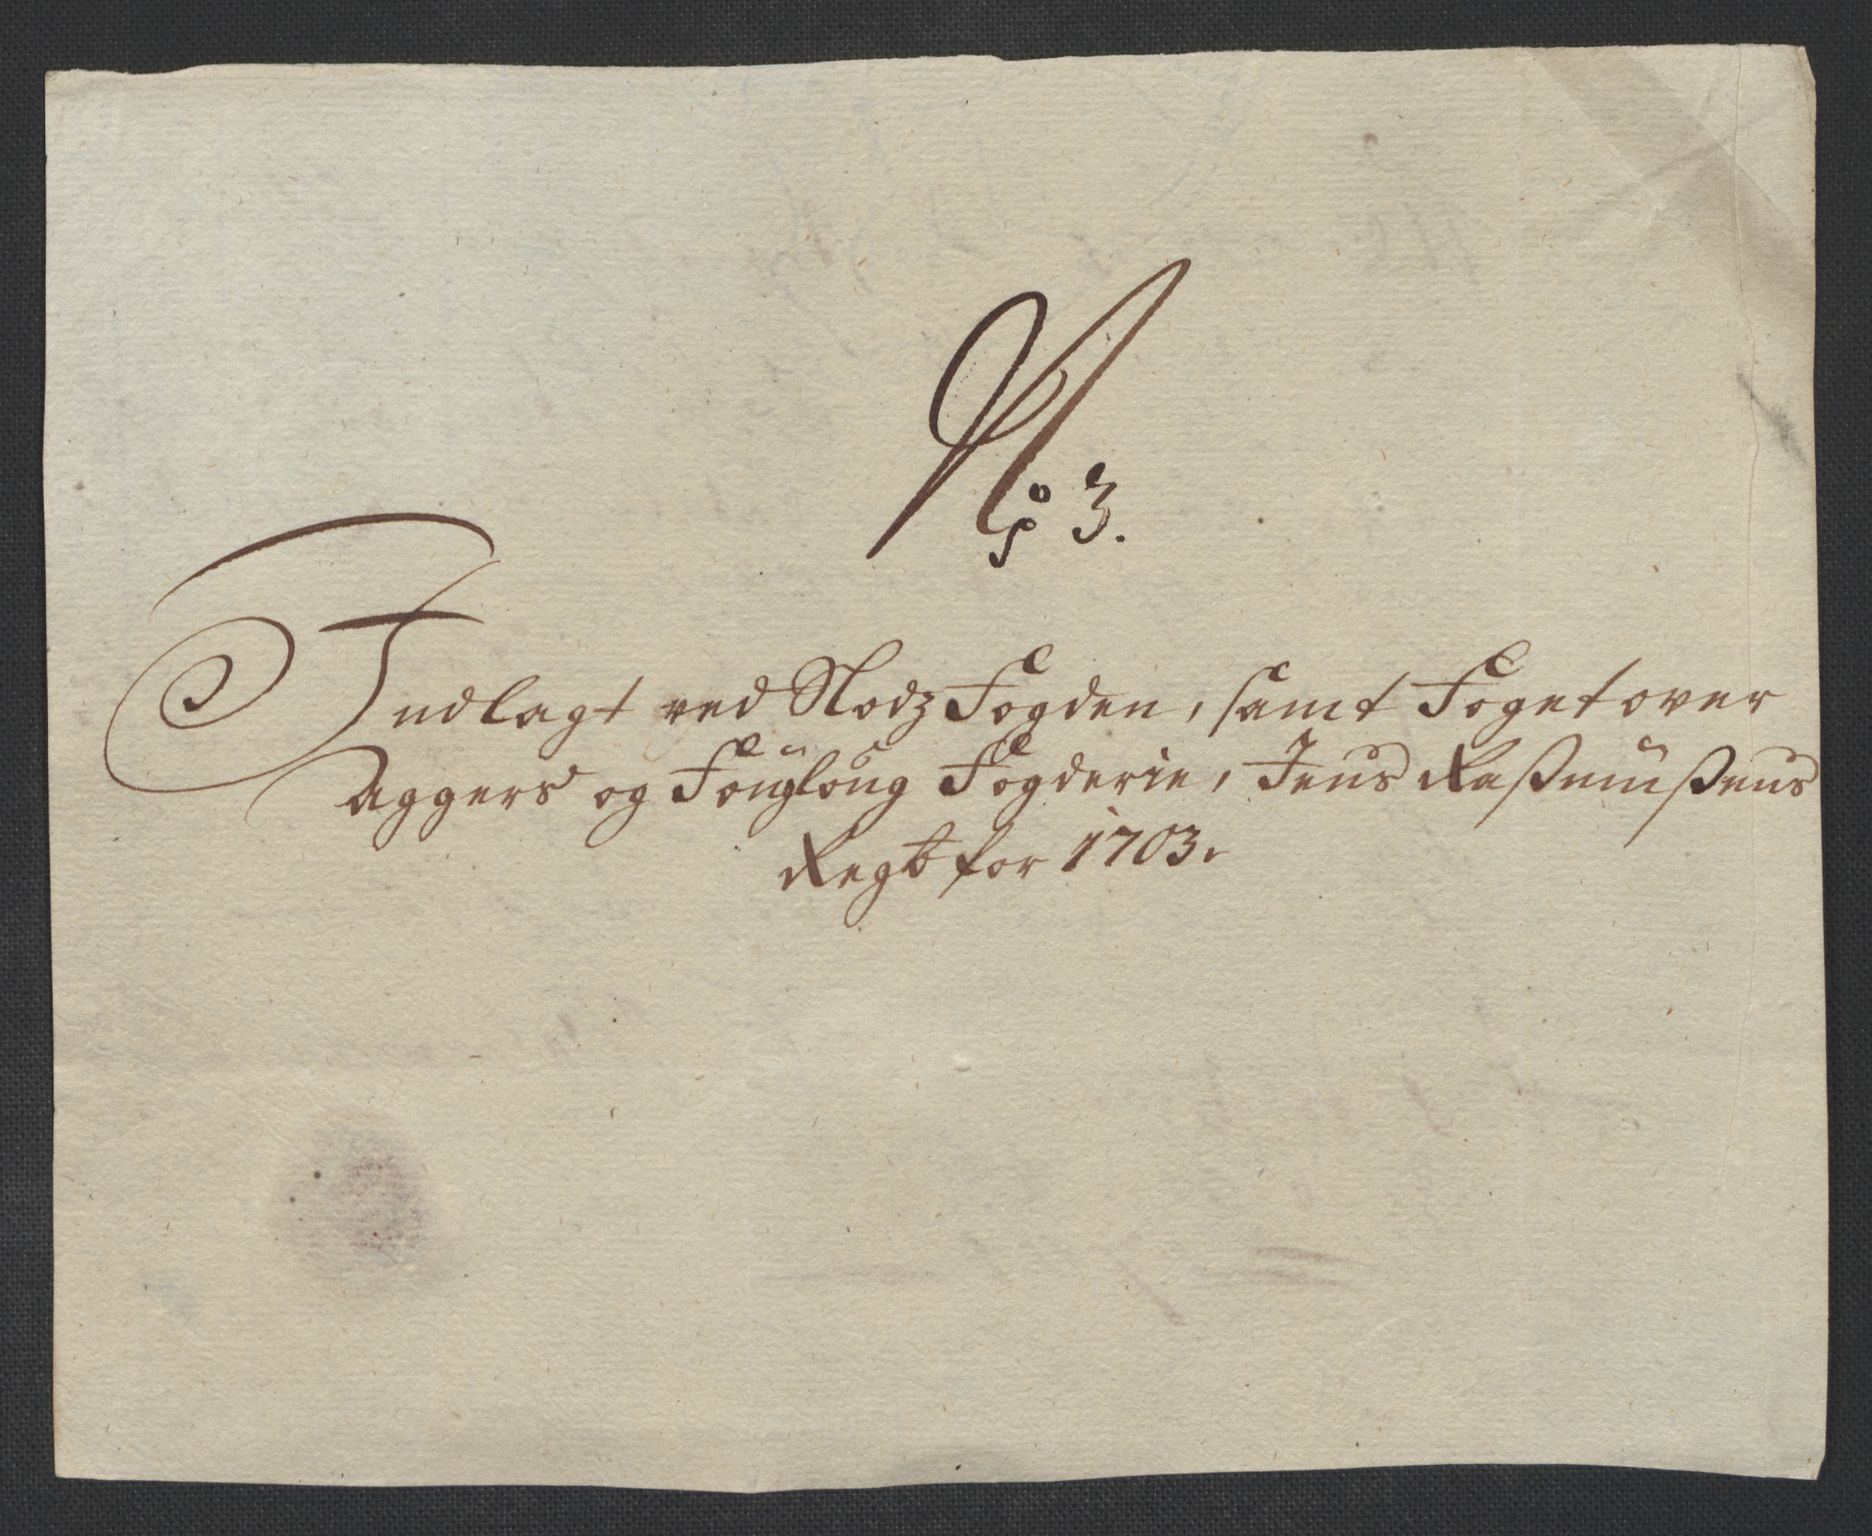 No 3.
Indlagt ved Slodz Fogden, samt Foget over
Aggers og Foũgloũg Fogderie, Jens Raßmũßens
Regb for 1703.